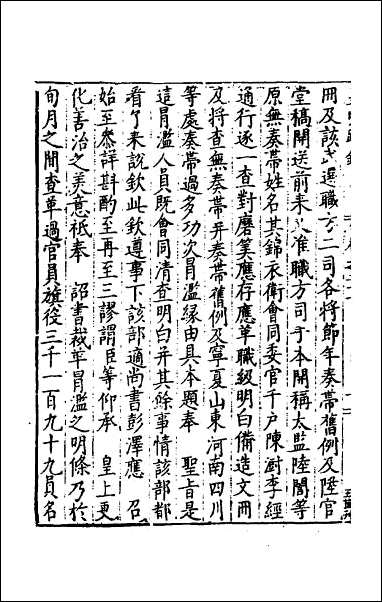 冊及該武選職方二司各將節年奏帶舊例及陞官
堂稿開送前來又准職方司手本開稱太監陸誾等
原無奏帶姓名其錦衣衛會同委官千戶陳尌李經
通行逐一查對磨筭應存應革職級明白備造文冊
及將查無奏帶并奏帶舊例及寧夏山東河南四川
等處奏帶過多功次冒濫緣由具本題奉　聖旨是
這冒濫人員既會同清查明白并其餘事情該部都
看了來說欽此欽遵事下該部適尚書彭澤應　召
始至叅詳斟酌至再至三謬謂臣等仰承　皇上更
化善治之美意祗奉　詔書裁革冒濫之明條乃於
旬月之間查革過官員旗役三千一百九十九員名